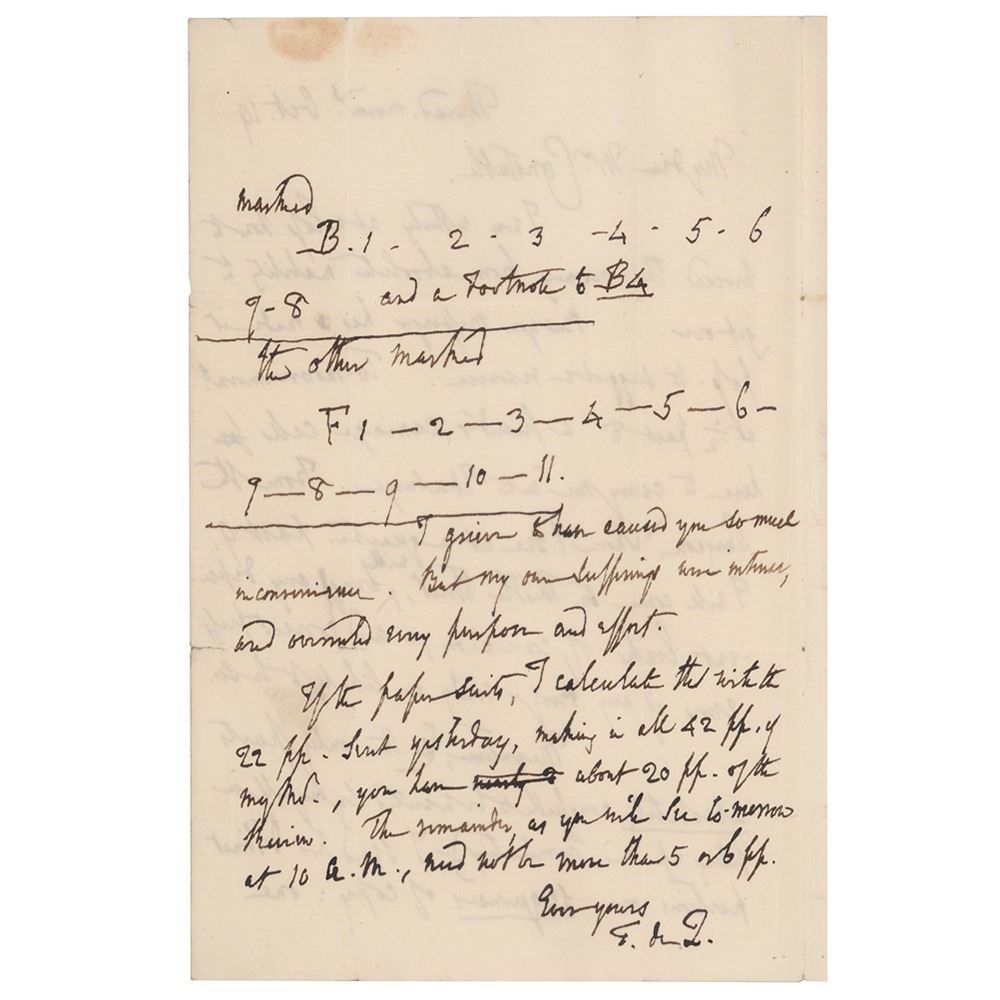 marked
B. 1 - 2 - 3 - 4 - 5 - 6
7 - 8 and a Footnote to B4
the other marked
F 1 — 2 — 3 — 4 — 5 — 6 —
7 — 8 — 9 — 10 — 11.
I grieve to have caused you so much
inconvenience. But my own sufferings were intense,
and overruled every purpose and effort.
If the paper suits, I calculate that with the
22 pp. sent yesterday, making in all 42 pp. of
my MS., you have nearly 2 about 20 pp. of the
Review. The remainder, as you will see to-morrow
at 10 A.M., need not be more than 5 or 6 pp.
Ever yours
T. de Q.